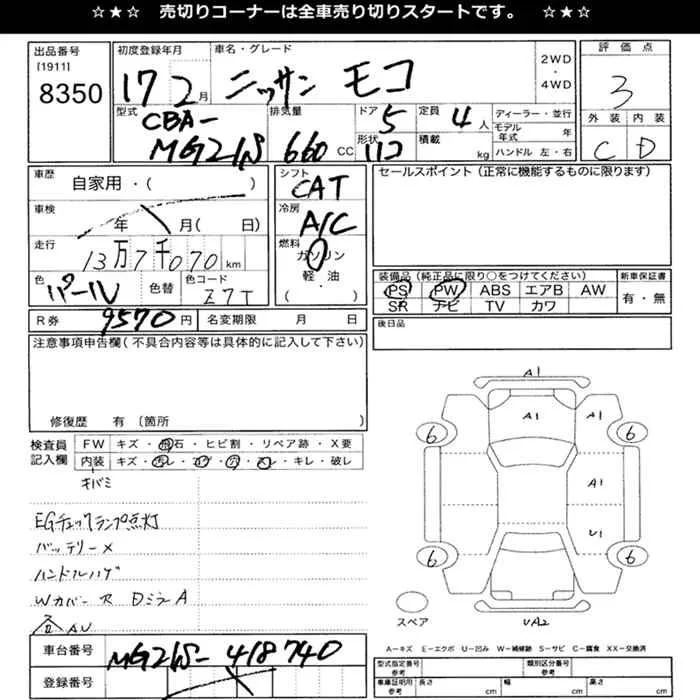 ☆★☆ 売切りコーナーは全車売り切りスタートです。 ☆★☆
出品番号 [1911] 8350
初度登録年月 17 2月
車名・グレード ニッサン モコ
2WD・4WD
評価点 3
外装 C 内装 D
型式 CBA-MG21S
排気量 660 cc
ドア 5 形状 ハコ
定員 4人
積載 kg
ディーラー・並行
モデル年式 年
ハンドル 左・右
車歴 自家用・( )
車検 年 月( 日)
走行 13万7千070km
色 パール 色替 色コード Z7T
シフト CAT
冷房 A/C
燃料 ガソリン 軽・油 ( )
セールスポイント(正常に機能するものに限ります)
装備品(純正品に限り○をつけてください)
PS PW ABS エアB AW
SR ナビ TV カワ
新車保証書 有・無
後日品
R券 9570円 名変期限 月 日
注意事項申告欄(不具合内容等は具体的に記入して下さい)
修復歴 有 [箇所 ]
検査員記入欄
FW キズ・飛石・ヒビ割・リペア跡・X要
内装 キズ・汚レ・コゲ・穴・スレ・キレ・破レ
キバミ
EGチェックランプ点灯
バッテリー×
ハンドルハゲ
Wカバー
DミラーA
車台番号 MG21S-418740
登録番号
A1
A1 A1
6 6
A1
U1
6 6
スペア
UA2
A=キズ E=エクボ U=凹み W=補修跡 S=サビ C=腐食 XX=交換済
型式指定番号 参考 類別区分番号 参考
車庫証明用 参考 長さ cm 幅 cm 高さ cm